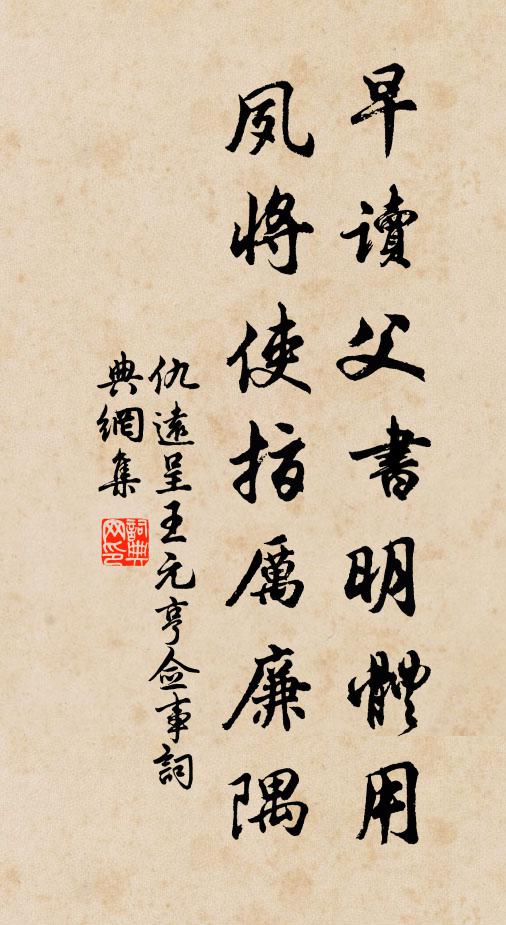 早讀父書明體用
夙將使指厲廉隅
仇遠呈王元亨僉事詞
典網集
詞典網印